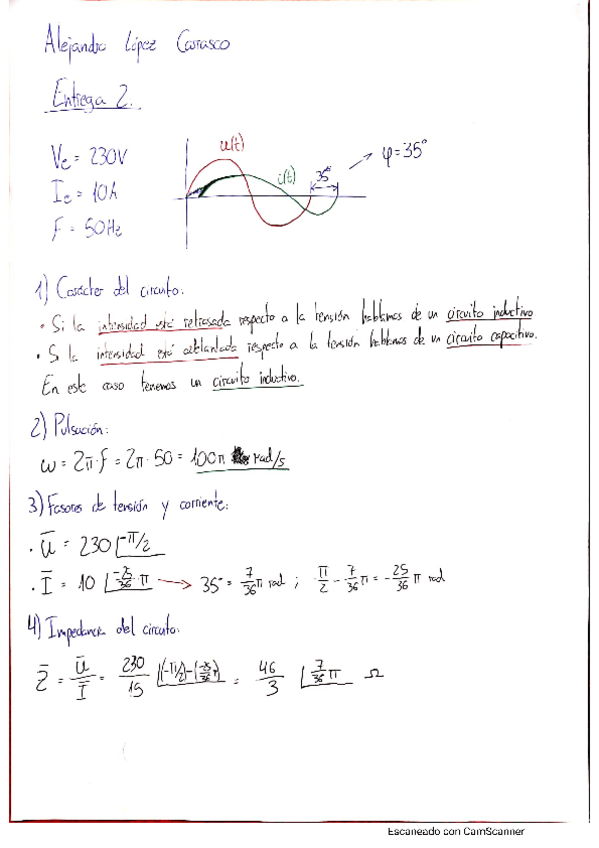 Alejandro López Carrasco
Entrega 2.
Ve = 230V
Ie = 10A
F = 50Hz
u(t)
i(t)
35°
φ = 35°
1) Carácter del circuito:
• Si la intensidad está retrasada respecto a la tensión hablamos de un circuito inductivo
• Si la intensidad está adelantada respecto a la tensión hablamos de un circuito capacitivo.
En este caso tenemos un circuito inductivo.
2) Pulsación:
ω = 2π·f = 2π·50 = 100π rad/s
3) Fasores de tensión y corriente:
• Ū = 230 ∟-π/2
• Ī = 10 ∟-25/36·π → 35° = 7/36 π rad ; π/2 - 7/36 π = -25/36 π rad
4) Impedancia del circuito:
Z̄ = Ū/Ī = 230/15 ∟(-π/2)-(-25/36 π) = 46/3 ∟7/36 π Ω
Escaneado con CamScanner